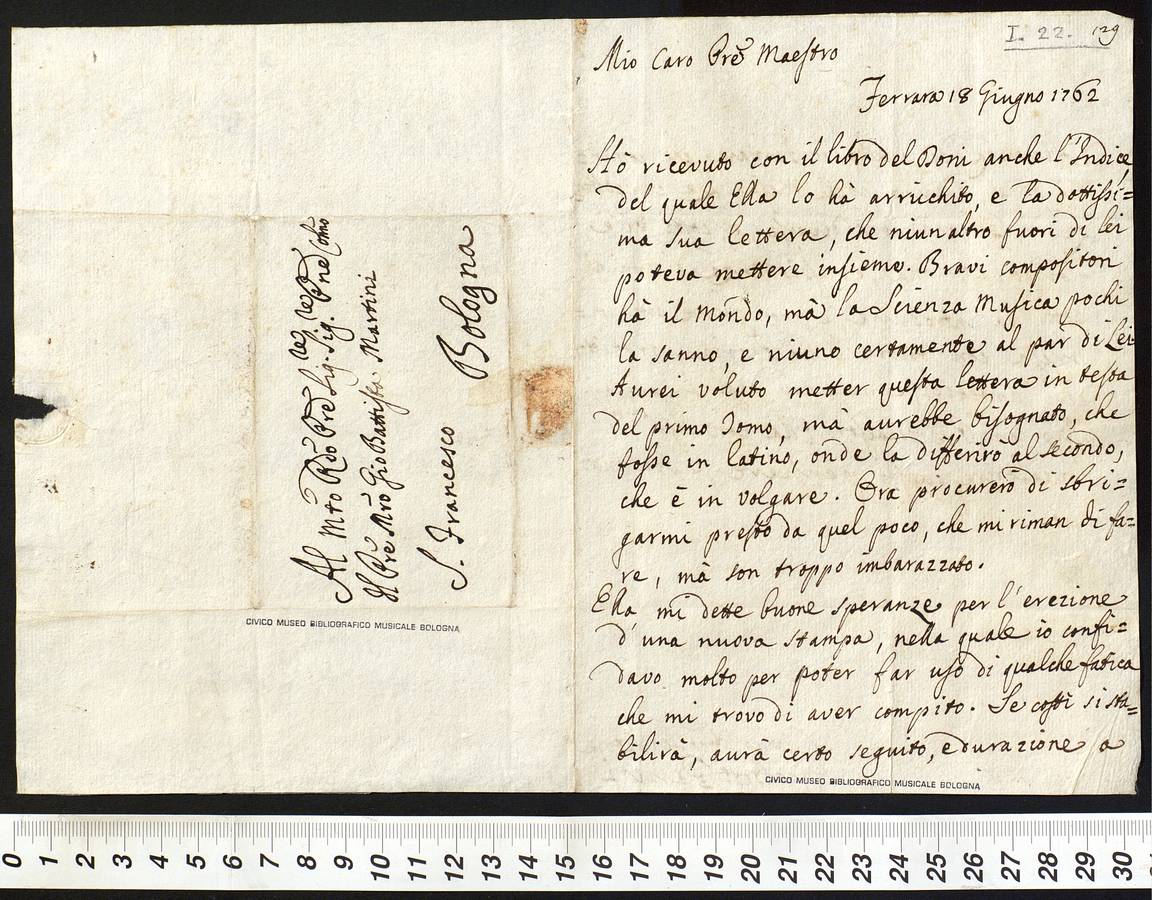 I. 22. 129
Mio Caro Pre Maestro
Ferrara 18 Giugno 1762
Hò ricevuto con il libro del Doni anche l'Indice,
del quale Ella lo hà arricchito, e la dottissi=
ma sua lettera, che niun altro fuori di lei
poteva mettere insieme. Bravi compositori
hà il Mondo, mà la Scienza Musica pochi
la sanno, e niuno certamente al par di Lei
Aurei voluto metter questa lettera in testa
del primo Tomo, mà aurebbe bisognato, che
fosse in latino, onde la differirò al secondo,
che è in volgare. Ora procurerò di sbri=
garmi presto da quel poco, che mi riman di fa=
re, mà son troppo imbarazzato.
Ella mi dette buone speranze per l'erezione
d'una nuova stampa, nella quale io confi=
davo molto per poter far uso di qualche fatica
che mi trovo di aver compito. Se costì si sta=
bilirà, aurà certo seguito, e durazione a
CIVICO MUSEO BIBLIOGRAFICO MUSICALE BOLOGNA
Al Mto Rdo Pre Sig. Sig. Pne Colmo
Il Pre Mro Gio Battista Martini
S. Francesco Bologna
CIVICO MUSEO BIBLIOGRAFICO MUSICALE BOLOGNA
0 1 2 3 4 5 6 7 8 9 10 11 12 13 14 15 16 17 18 19 20 21 22 23 24 25 26 27 28 29 30